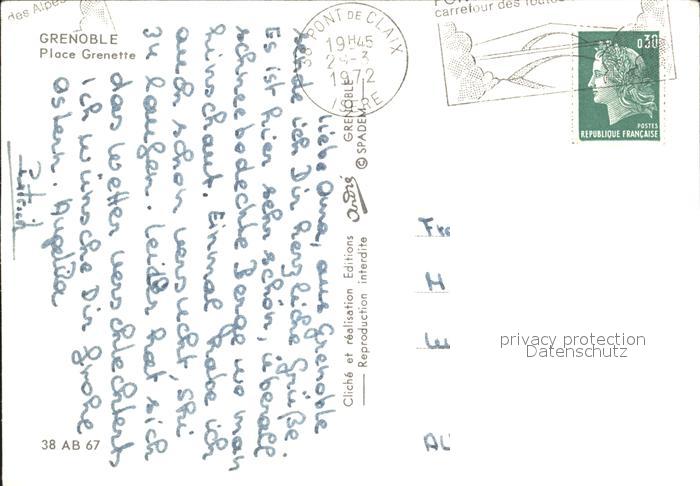 des Alpes
GRENOBLE
Place Grenette
38 PONT DE CLAIX
19H45
1972
ISERE
carrefour des toutes
0,30
POSTES
REPUBLIQUE FRANÇAISE
Liebe Oma, aus Grenoble
sende ich Dir herzliche Grüße.
Es ist hier sehr schön, überall
schneebedeckte Berge wo man
hinschaut. Einmal habe ich
auch schon versucht Ski
zu laufen. Leider hat sich
das Wetter verschlechtert
Ich wünsche Dir frohe
Ostern. Angelika
GRENOBLE
© SPADEM
André
Cliché et réalisation Editions
Reproduction interdite
38 AB 67
Fre
H
AL
privacy protection
Datenschutz